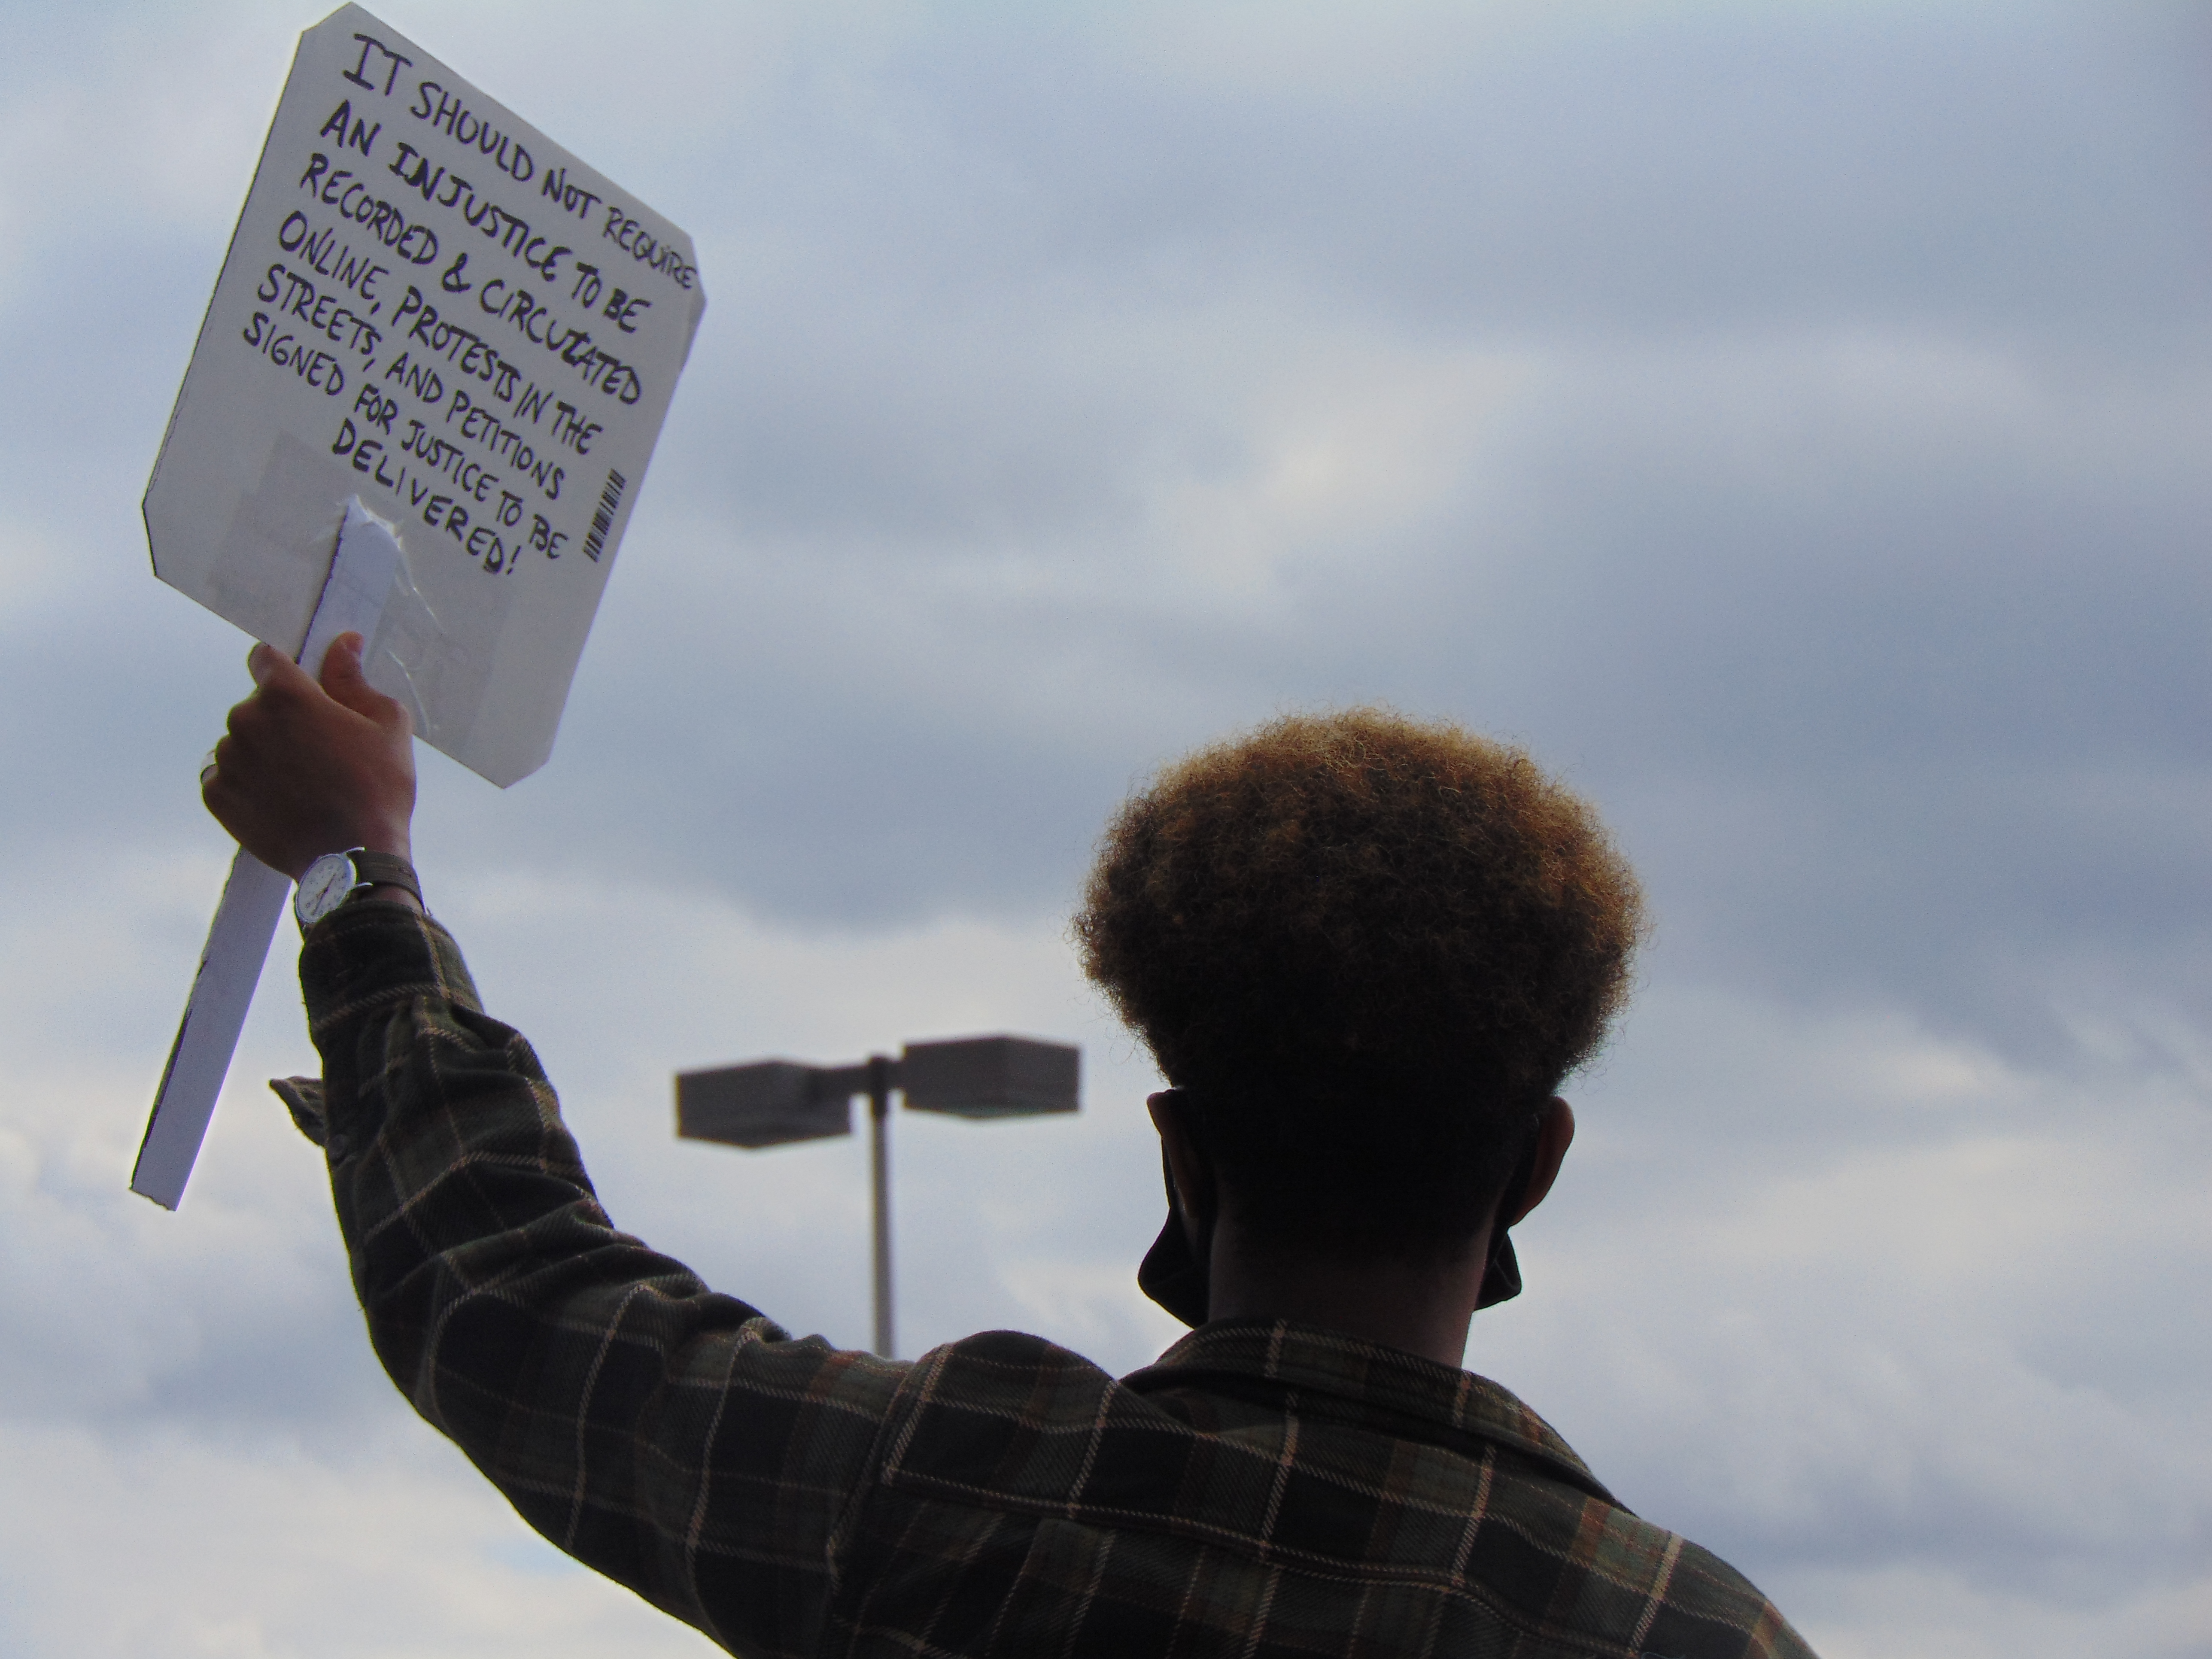 IT SHOULD NOT REQUIRE
AN INJUSTICE TO BE
RECORDED & CIRCULATED
ONLINE, PROTESTS IN THE
STREETS, AND PETITIONS
SIGNED FOR JUSTICE TO BE
DELIVERED!